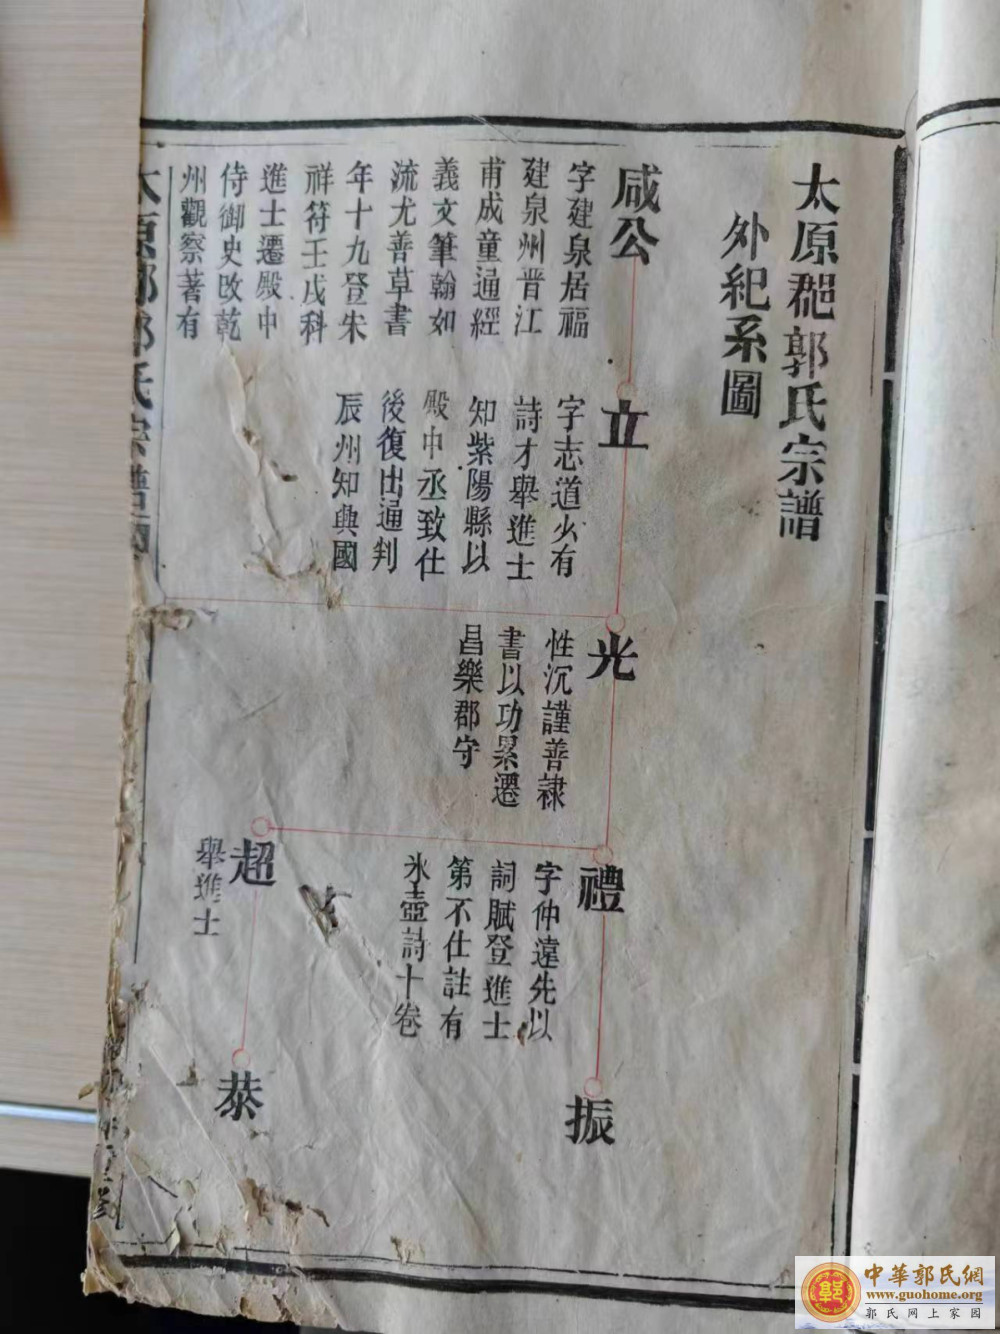 太原郡郭氏宗譜
外紀系圖
咸公
字建泉居福
建泉州晋江
甫成童通經
義文筆翰如
流尤善草書
年十九登朱
祥符壬戌科
進士遷殿中
侍御史改乾
州觀察著有
立
字志道少有
詩才舉進士
知紫陽縣以
殿中丞致仕
後復出通判
辰州知興國
光
性沉謹善隸
書以功累遷
昌樂郡守
禮
字仲違先以
詞賦登進士
第不仕註有
氷壺詩十卷
超
舉進士
振
恭
太原郡郭氏宗譜
中華郭氏網
www.guohome.org
郭氏网上家园